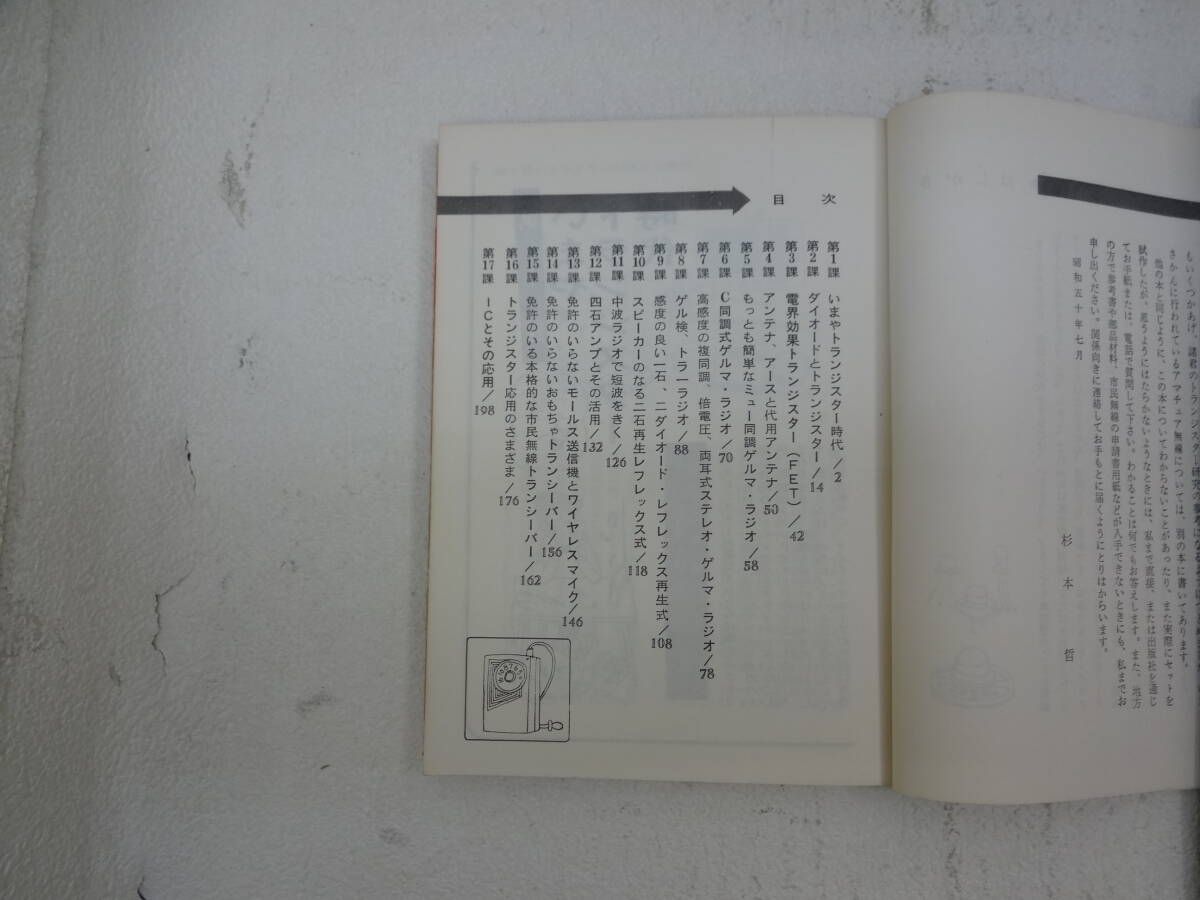 もいくつかあげ、諸君のトランジスター研究の参考になる
さかんに行われているアマチュア無線については、別の本に書いてあります。
他の本と同じように、この本についてわからないことがあったり、また実際にセットを
試作したが、思うようにはたらかないようなときには、私まで直接、または出版社を通じ
てお手紙または、電話で質問して下さい。わかることは何でもお答えします。また、地方
の方で参考書や部品材料、市民無線の申請書用紙などが入手できないときにも、私までお
申し出ください。関係向きに連絡してお手もとに届くようにとりはからいます。
昭和五十年七月
杉本哲
目次
第1課 いまやトランジスター時代/2
第2課 ダイオードとトランジスター/14
第3課 電界効果トランジスター(FET)/42
第4課 アンテナ、アースと代用アンテナ/50
第5課 もっとも簡単なミュー同調ゲルマ・ラジオ/58
第6課 C同調式ゲルマ・ラジオ/70
第7課 高感度の複同調、倍電圧、両耳式ステレオ・ゲルマ・ラジオ/78
第8課 ゲル検、トラーラジオ/88
第9課 感度の良い一石、二ダイオード・レフレックス再生式/108
第10課 スピーカーのなる二石再生レフレックス式/118
第11課 中波ラジオで短波をきく/126
第12課 四石アンプとその活用/132
第13課 免許のいらないモールス送信機とワイヤレスマイク/146
第14課 免許のいらないおもちゃトランシーバー/156
第15課 免許のいる本格的な市民無線トランシーバー/162
第16課 トランジスター応用のさまざま/176
第17課 ICとその応用/198